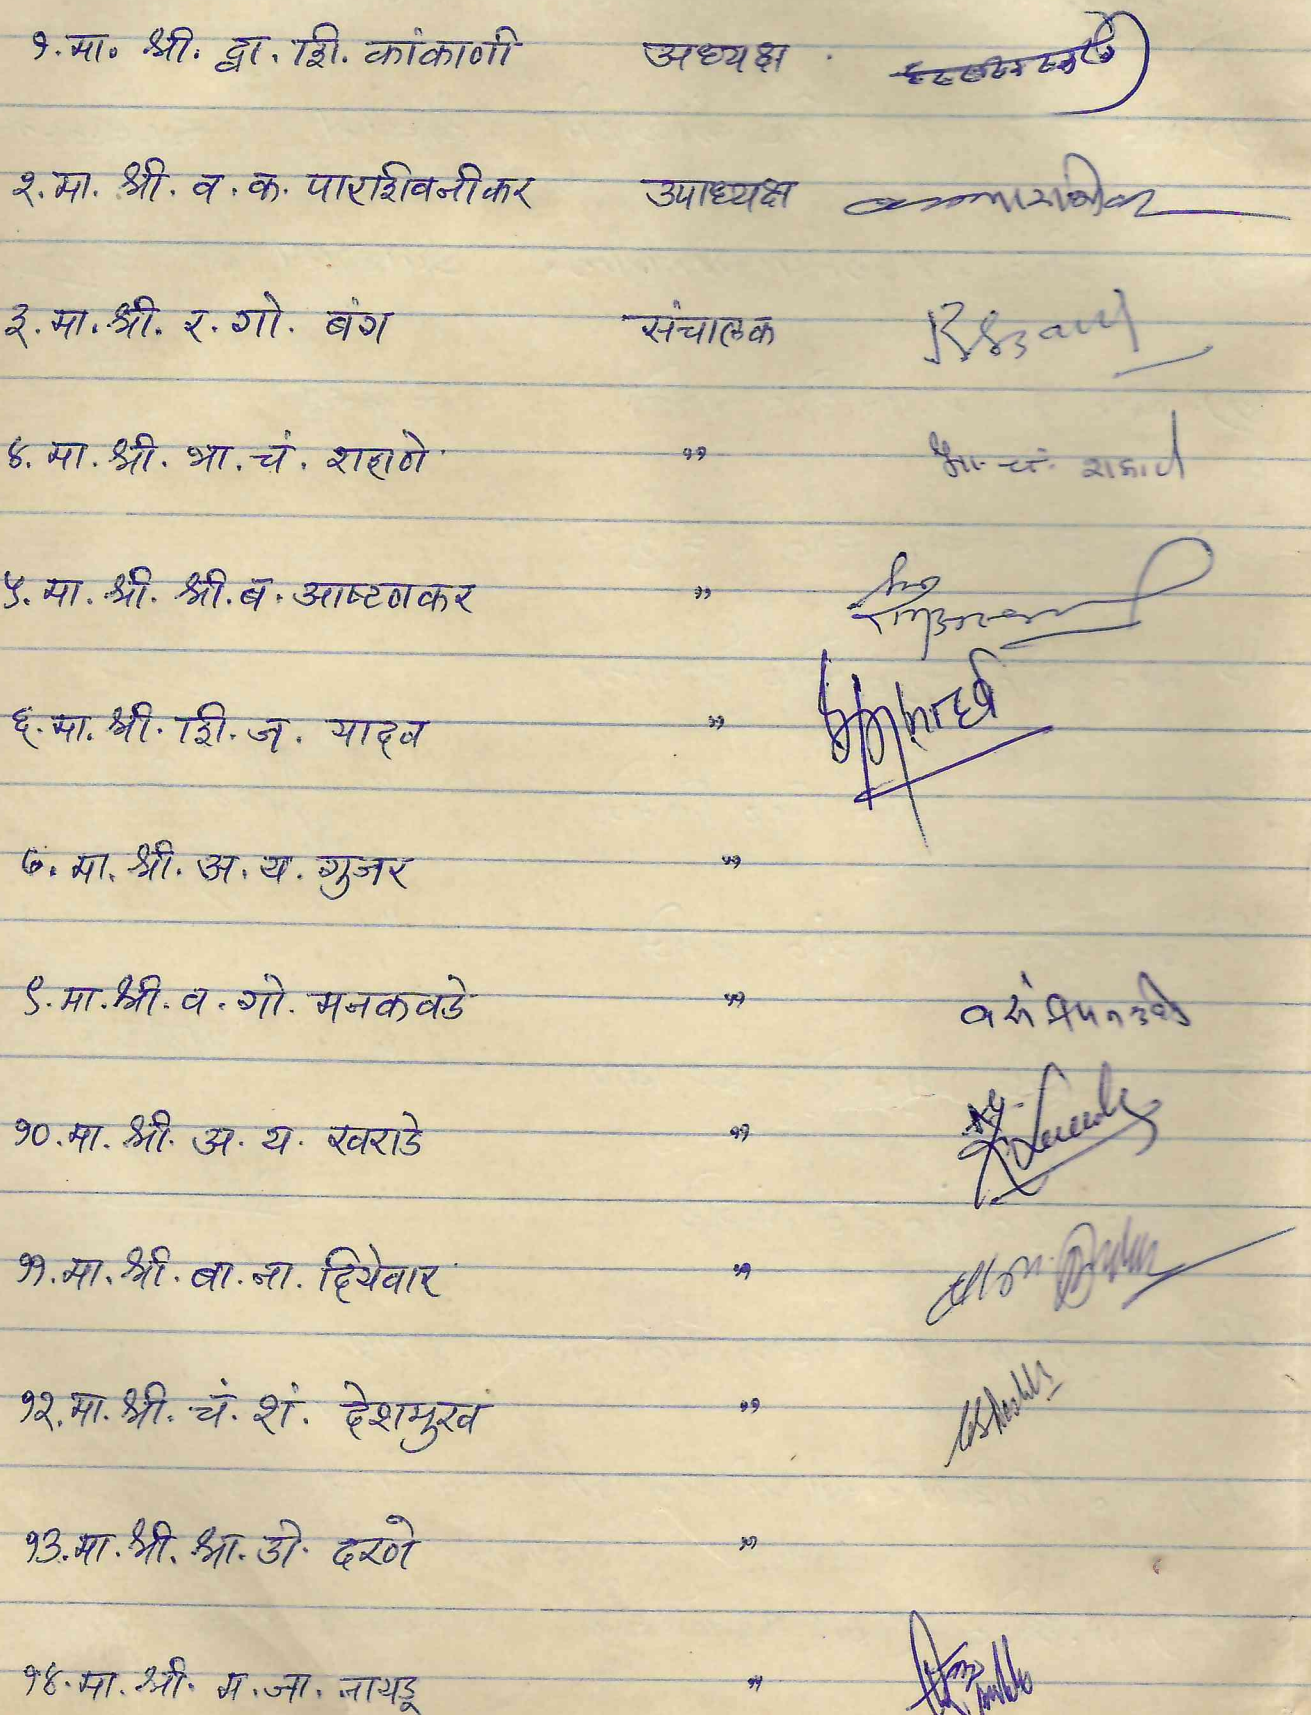 १. मा. श्री. द्वा. शि. कांकाणी अध्यक्ष
२. मा. श्री. व. क. पारशिवनीकर उपाध्यक्ष
३. मा. श्री. र. गो. बंग संचालक
४. मा. श्री. भा. चं. शहाणे " भा. चं. शहाणे
५. मा. श्री. श्री. ब. आष्टणकर "
६. मा. श्री. शि. ज. यादव "
७. मा. श्री. अ. य. गुजर "
९. मा. श्री. व. गो. मनकवडे "
१०. मा. श्री. अ. य. खराडे "
११. मा. श्री. बा. ना. दियेवार "
१२. मा. श्री. चं. शं. देशमुख "
१३. मा. श्री. श्रा. डो. दरणे "
१४. मा. श्री. म. जा. नायडू "